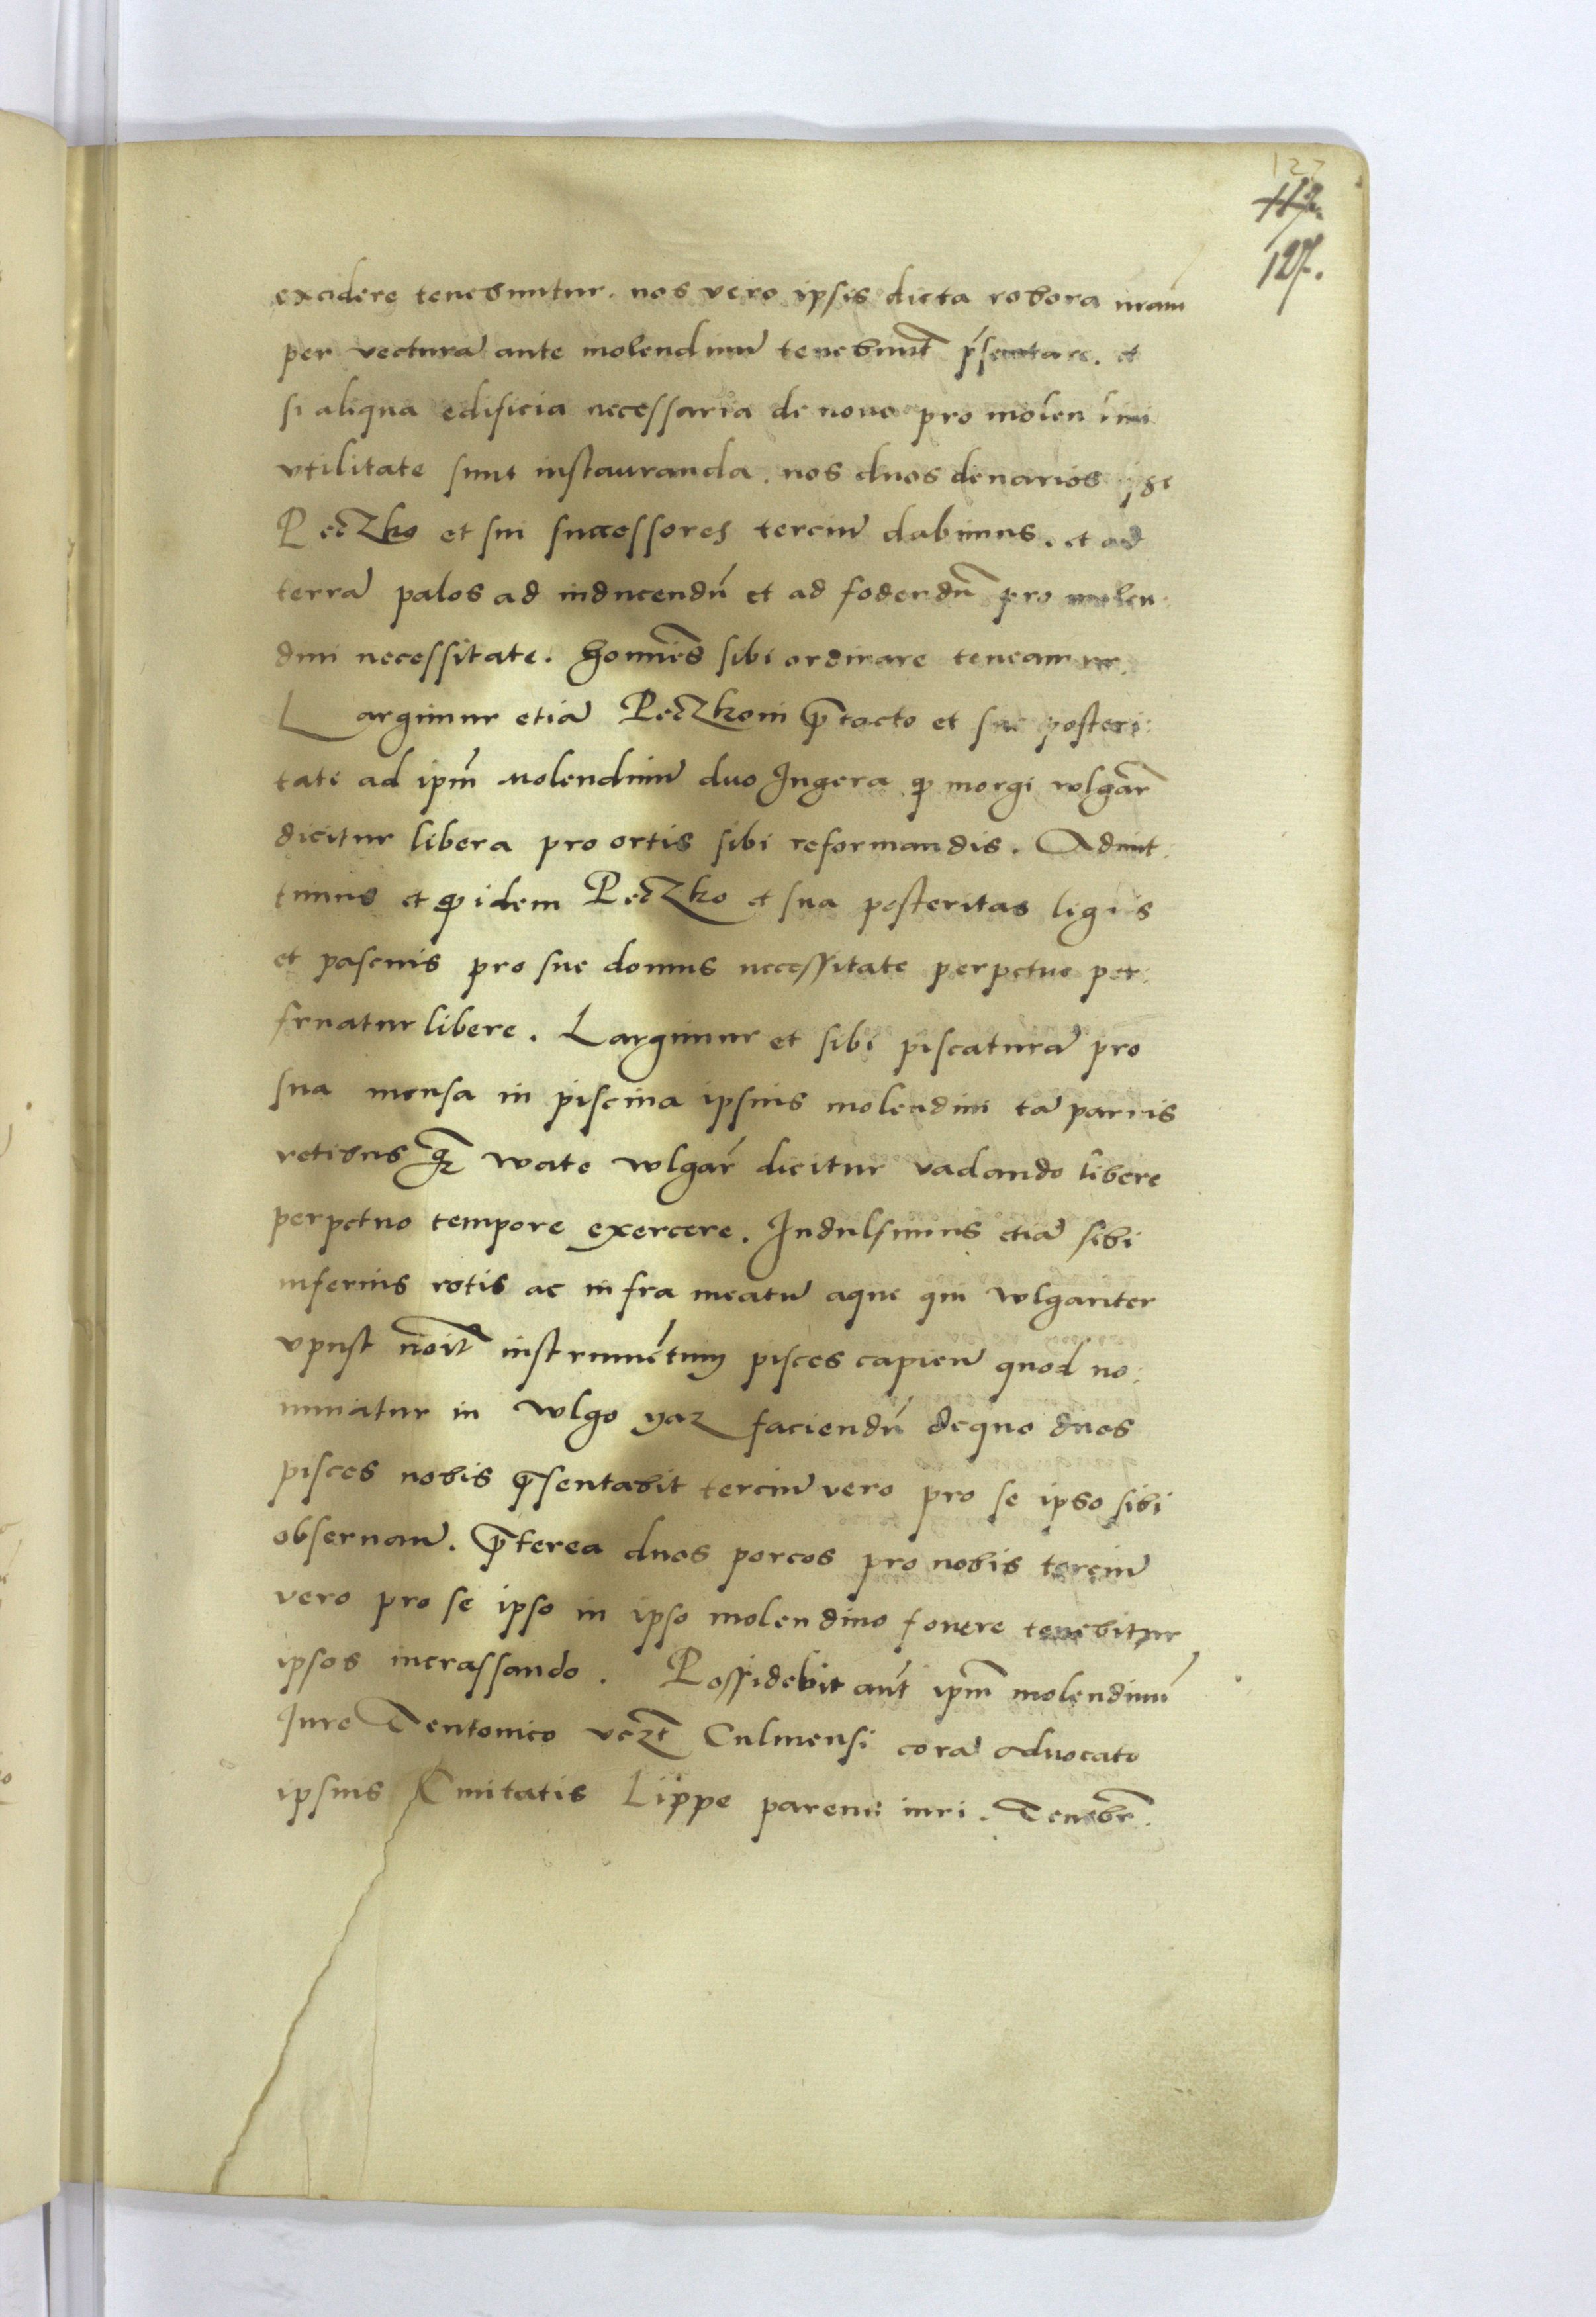 127
117.
127.
excidere tenebuntur. nos vero ipsis dicta robora nram
per vecturā ante molendinū tenebimt p̄sentare. et
si aliqua edificia necessaria de nouo pro molendini
vtilitate sunt instauranda. nos duos denarios ipse
Peczko et sui successores terciū dabimus. et ad
terrā palos ad inducendū et ad fodendū pro molen:
dini necessitate. homines sibi ordinare teneamur.
Largimur etiā Peczkoni p̄tacto et sue posteri:
tati ad ipm̄ Molendinū duo Jugera qͥ morgi wlgar̄
dicitur libera pro ortis sibi reformandis. Admit:
timus et qͥ idem Peczko et sua posteritas lignis
et pascuis pro sue domus necessitate perpetue per:
fruatur libere. Largimur et sibi piscaturā pro
sua mensa in piscina ipsius molendini tā paruis
retibus q̄ wate wlgar̄ dicitur vadando libere
perpetuo tempore exercere. Indulsimus etiā sibi
inferius rotis ac infra meatū aque qui wlgariter
vpust no͞it instrumētum pisces capienū quod no:
minatur in wlgo yaz faciendū de quo duos
pisces nobis p̄sentabit terciū vero pro se ipso sibi
obseruanū. p̄terea duos porcos pro nobis terciū
vero pro se ipso in ipso molendino fouere tenebitur
ipsos incrassando. Possidebit aut̄ ipm̄ molendinū
Jure Teutonico vezt̄ Culmensi corā aduocato
ipsius Ciuitatis Lippe parenū iuri. Tenebr̄.